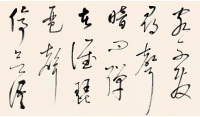 客不發
尋聲
暗問彈
者誰琵
琶聲
停欲語